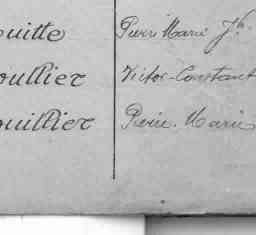 ouitte Pierre Marie Jh
oullier Victor-Constant
ouillier Pierre-Marie